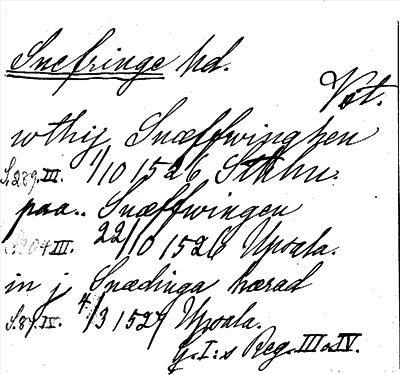 Snefringe hd.
Vst.
wthij Snæffwinghen
S. 289. III. 1/10 1526 Sthlm.
paa.. Snæffwingen
304. III. 22/10 1526 Upsala.
in j Snædinga hærad
S. 87. IV. 4/3 1527 Upsala.
G. I:s Reg. III o. IV.